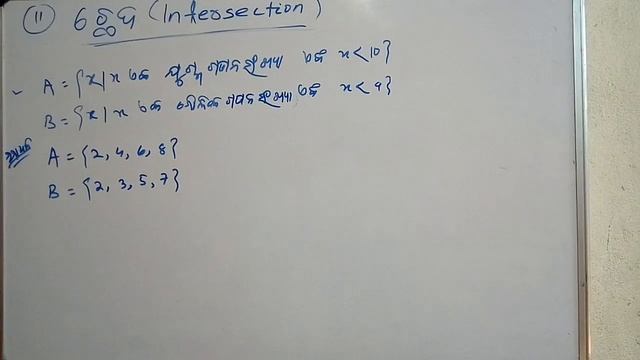 11 ଛେଦ (Intersection)
A = {x | x ଏକ ଯୁଗ୍ମ ଗଣନ ସଂଖ୍ୟା ଏବଂ x < 10}
B = {x | x ଏକ ମୌଳିକ ଗଣନ ସଂଖ୍ୟା ଏବଂ x < 9}
A = {2, 4, 6, 8}
B = {2, 3, 5, 7}